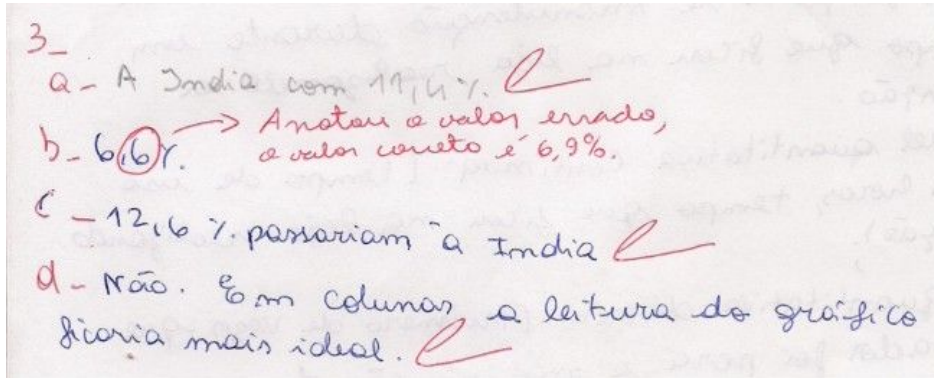 3_
a - A India com 11,4%.
b - 6,6%. → Anotou o valor errado,
o valor correto é 6,9%.
c - 12,6 %. passariam a India
d - Não. Em colunas a leitura do gráfico
ficaria mais ideal.